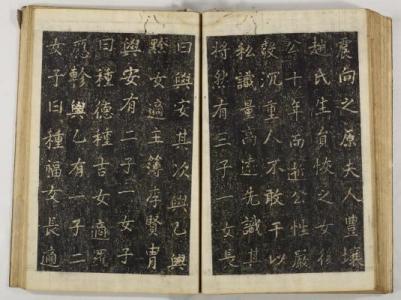 震向之原夫人豐壤
趙氏生貟之女後
公十年而逝公性嚴
毅沉重人不敢干以
私識量高遠先識其
將然有三子一女長
曰與安其次與乙與
黔女適主簿李賢胄
與安有二子一女子
曰種德種吉女適
軫與乙有一子二
女子曰種福女長適